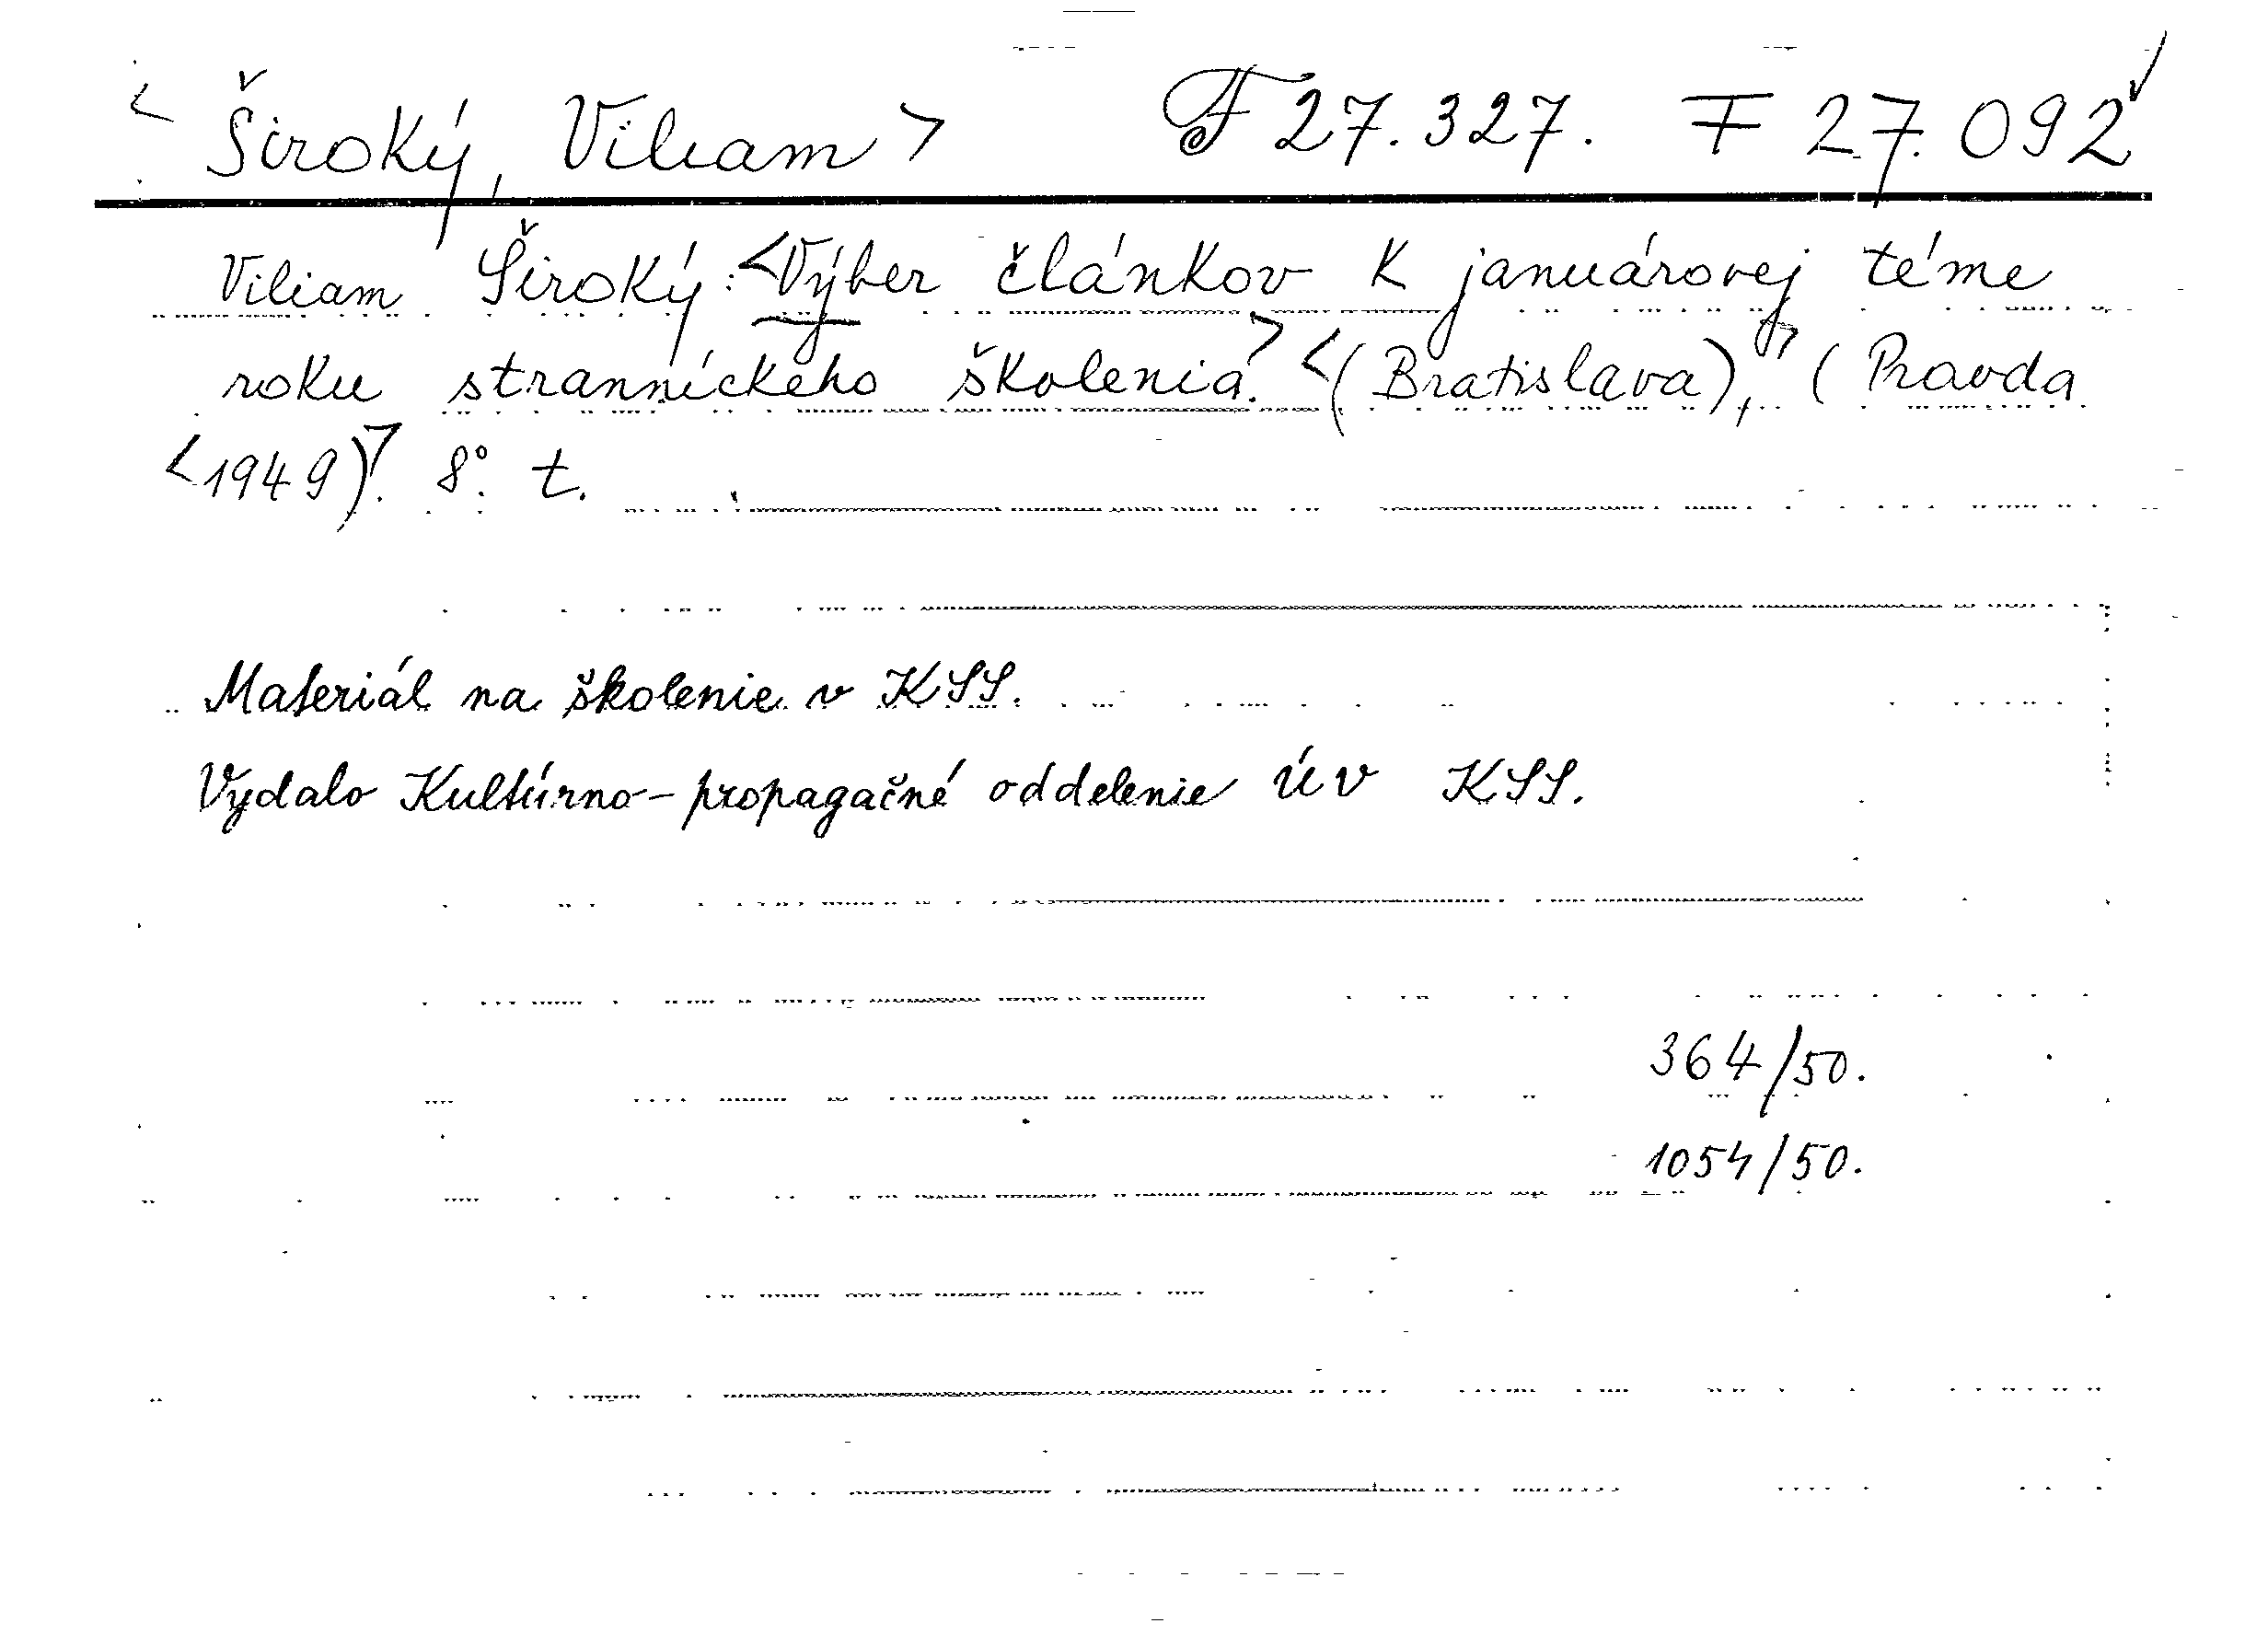 < Široký, Viliam > F 27.327. F 27.092
Viliam Široký: <Výber článkov k januárovej téme
roku stranníckeho školenia.> <(Bratislava),> (Pravda
<1949)>. 8°. t.
Materiál na školenie v KSS.
Vydalo Kultúrno-propagačné oddelenie ÚV KSS.
364/50.
1054/50.